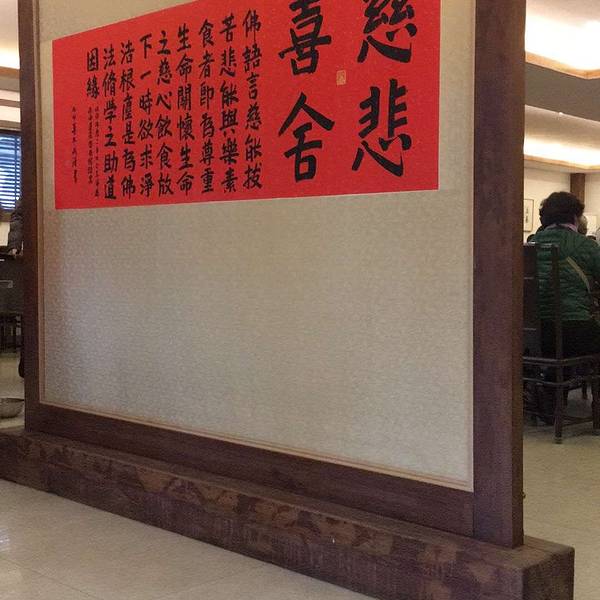 慈悲
喜舍
佛語言慈能拔
苦悲能與樂素
食者即為尊重
生命關懷生命
之慈心飲食放
下一時欲求淨
洁根塵是為佛
法脩學之助道
因緣